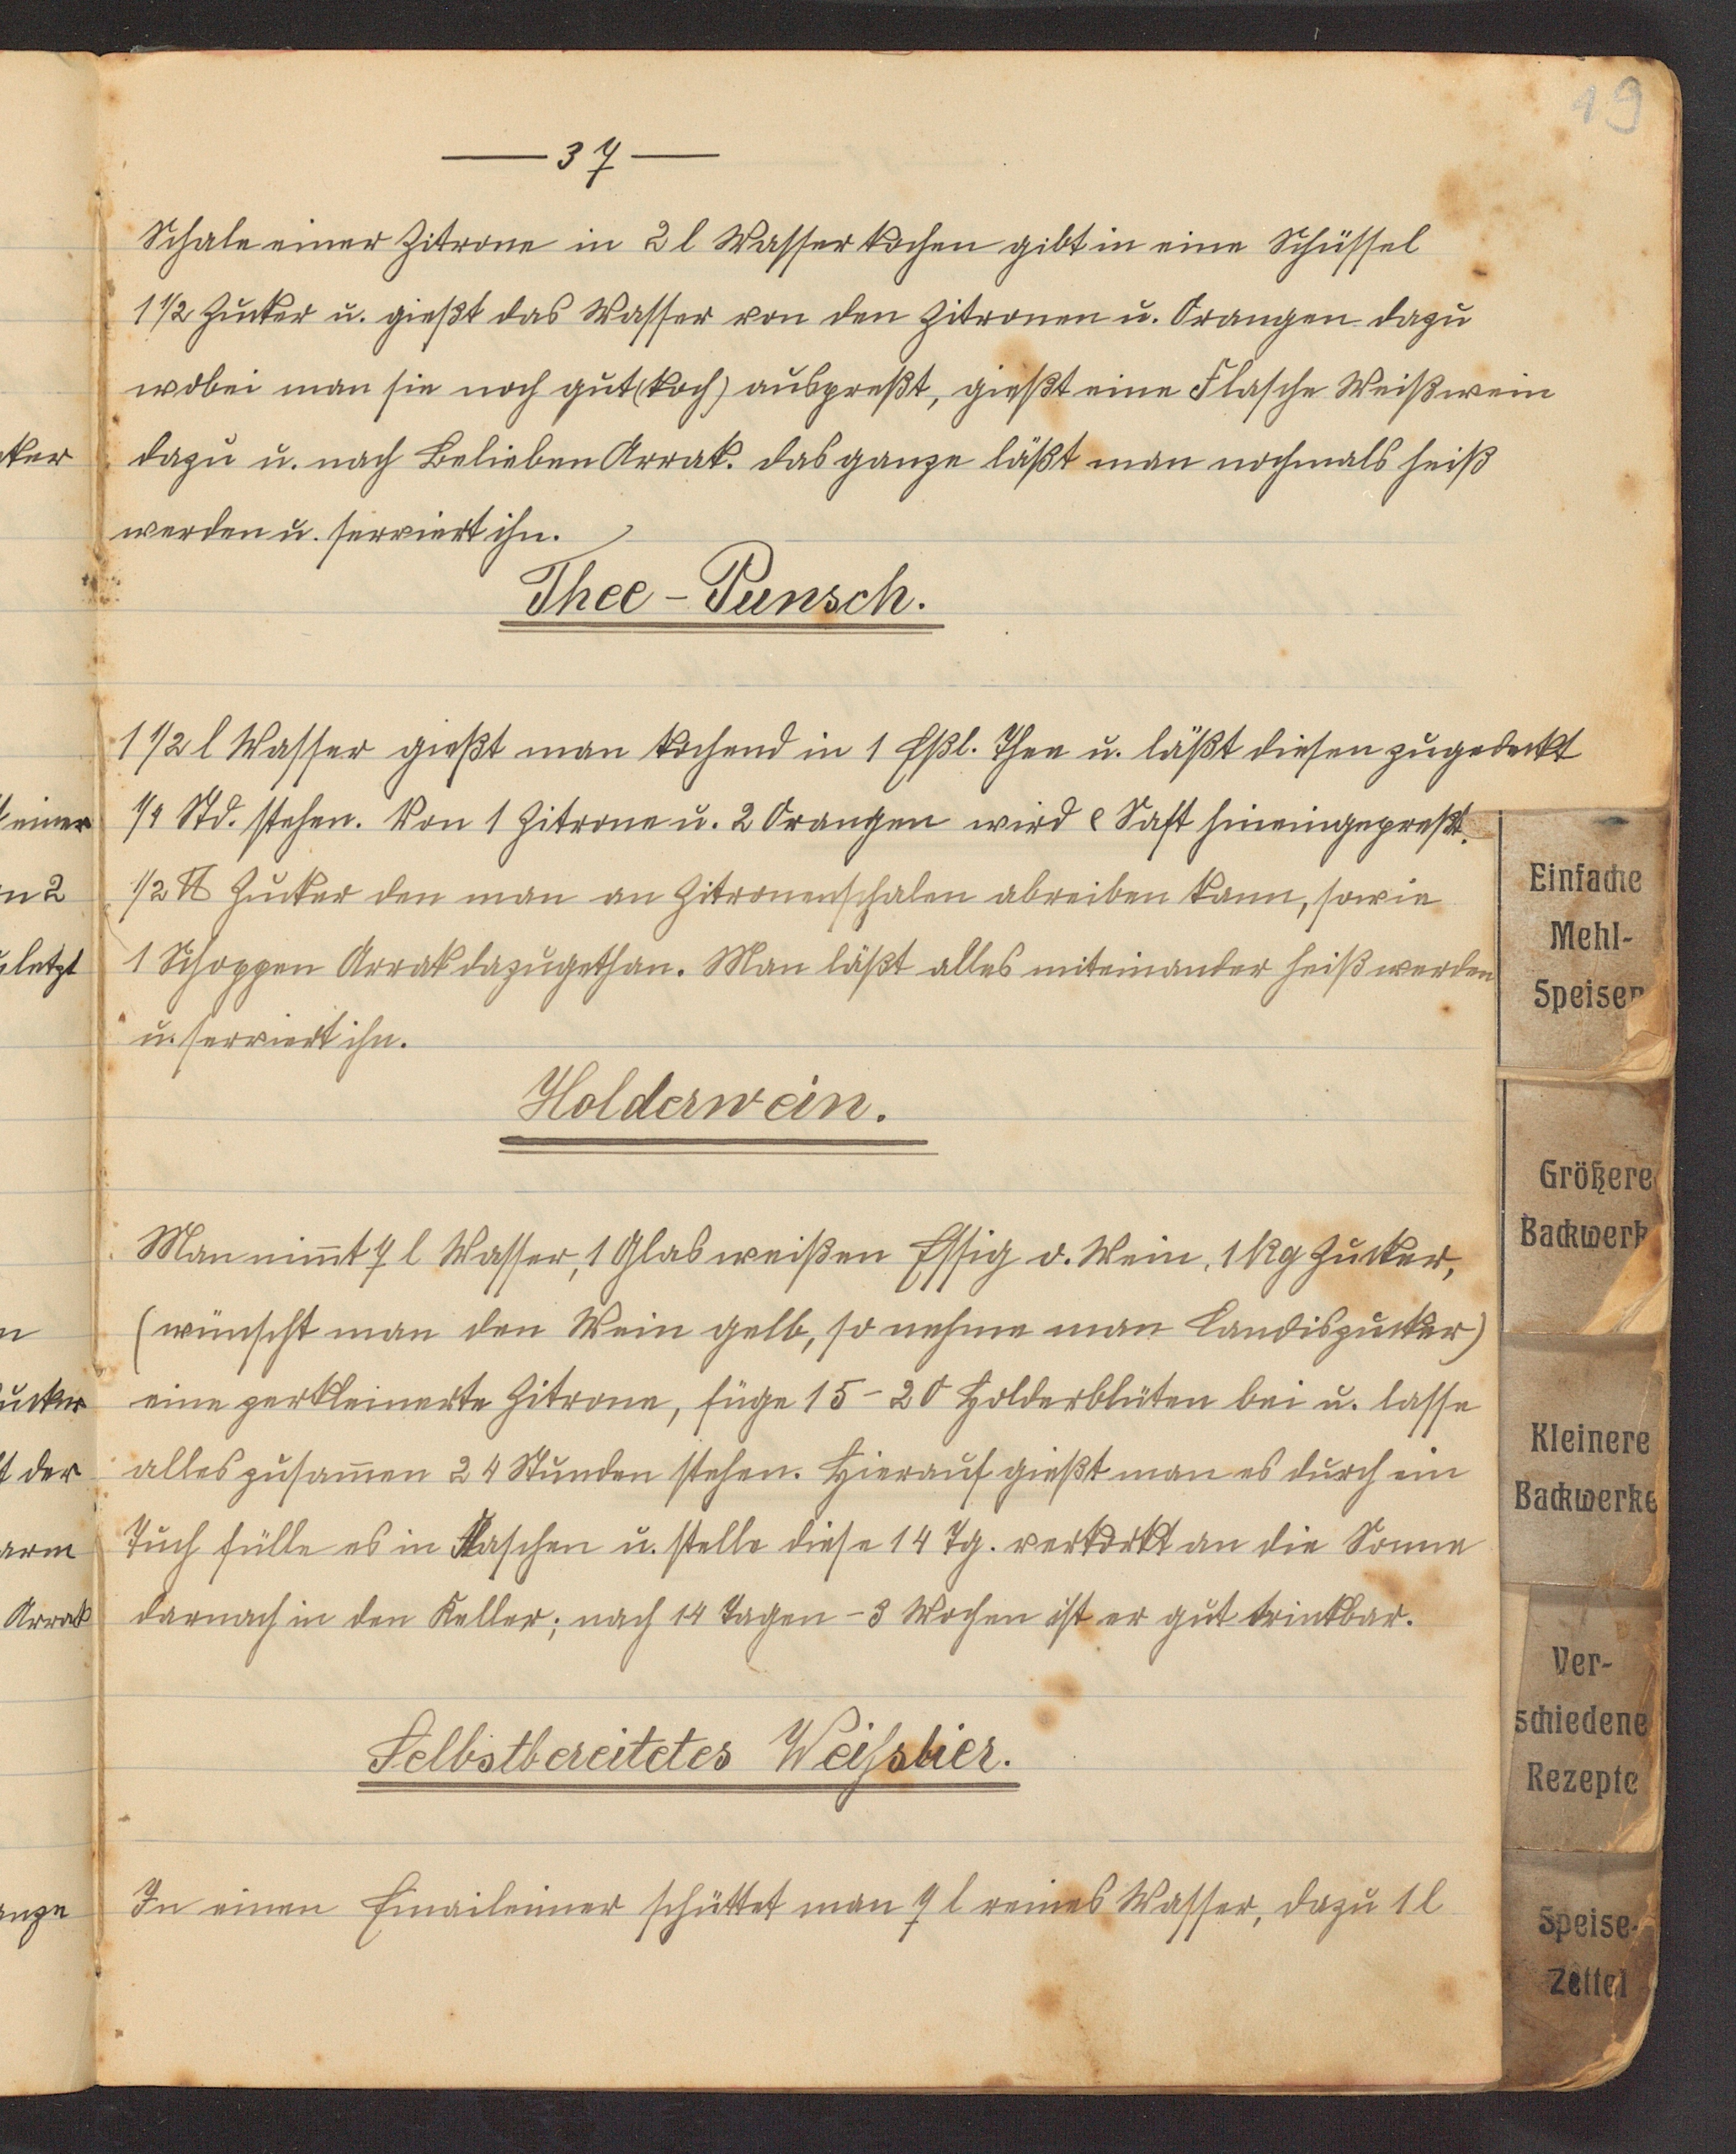 19
— 37 —
Schale einer Zitrone in 2 l Wasser kochen gibt in eine Schüssel
1 1/2 Zucker u. gießt das Wasser von den Zitronen u. Orangen dazu
wobei man sie noch gut (koch) auspreßt, gießt eine Flasche Weißwein
dazu u. nach Belieben Arrak. das ganze läßt man nochmals heiß
werden u. serviert ihn.
Thee-Punsch.
1 1/2 l Wasser gießt man kochend in 1 Eßl. Thee u. läßt diesen zugedeckt
1/4 Std. stehen. Von 1 Zitrone u. 2 Orangen wird Saft hineingepreßt.
1/2 ℔ Zucker den man an Zitronenschalen abreiben kann, sowie
1 Schoppen Arrak dazugethan. Man läßt alles miteinander heiß werden
u. serviert ihn.
Holderwein.
Man nim̄t 7 l Wasser, 1 Glas weißen Essig o. Wein, 1 Kg Zucker,
(wünscht man den Wein gelb, so nehme man Candiszucker)
eine zerkleinerte Zitrone, füge 15-20 Holderblüten bei u. lasse
alles zusam̄en 24 Stunden stehen. Hierauf gießt man es durch ein
Tuch fülle es in Flaschen u. stelle diese 14 Tg. verkorkt an die Sonne
darnach in den Keller; nach 14 Tagen - 3 Wochen ist er gut trinkbar.
Selbstbereitetes Weißbier.
In einen Emaileimer schüttet man 7 l reines Wasser, dazu 1 l
Einfache
Mehl-
Speisen
Größere
Backwerk
Kleinere
Backwerke
Ver-
schiedene
Rezepte
Speise-
Zettel
cker
einer
n 2
uletzt
n
ucker
t der
arm
Arrak
anze